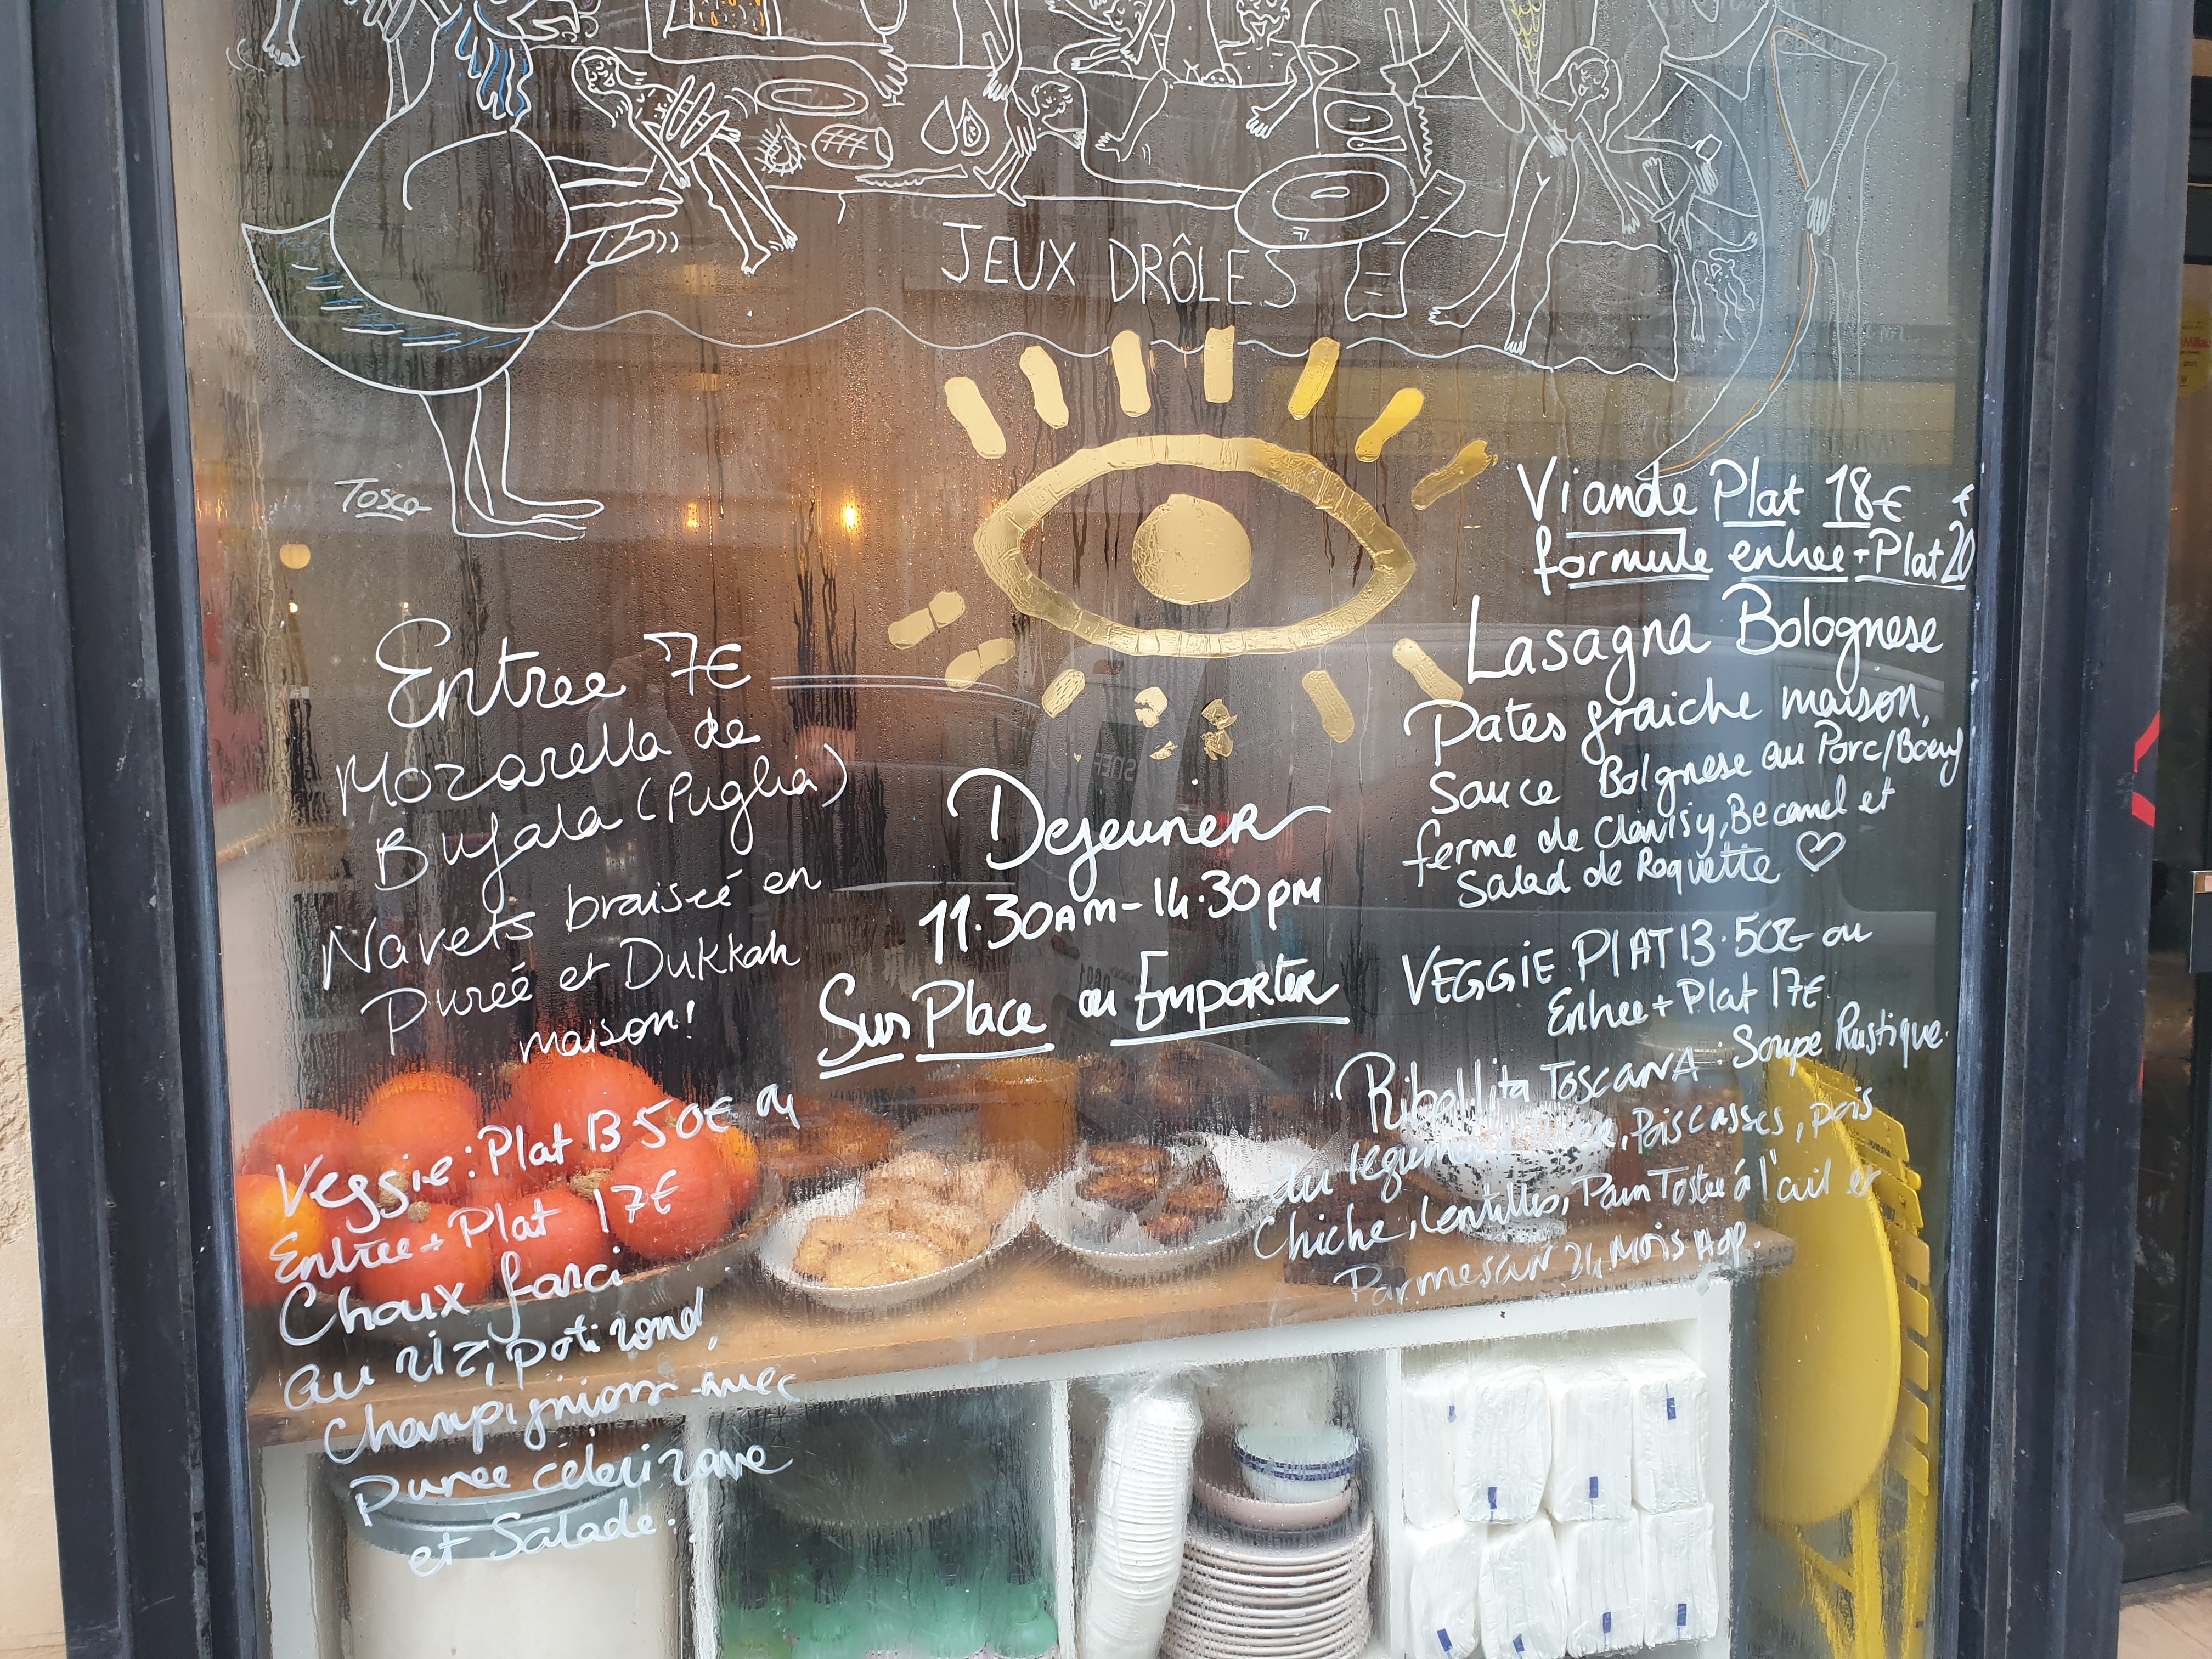 JEUX DRÔLES
Tosca
Entree 7€
Mozarella de
Bufala (Puglia)
Navets braiseé en
Pureé et Dukkah
maison!
Veggie: Plat 13.50€ ou
Entree + Plat 17€
Choux farci
au riz, potirond,
Champignions avec
Puree céleri rave
et Salade.
Dejeuner
11.30AM-14.30PM
Sur Place ou Emporter
Viande Plat 18€
formule entree + Plat 20
Lasagna Bolognese
Pates fraiche maison,
Sauce Bolgnese au Porc/Boeuf
ferme de Clavisy, Becamel et
Salad de Roquette ♡
VEGGiE PlAT 13.50€ ou
Entree + Plat 17€
Ribollita TOSCANA: Soupe Rustique
au legumes, Pois casses, pois
Chiche, lentilles, Pain Tostee á l'ail et
Parmesan 24 Mois Aop.